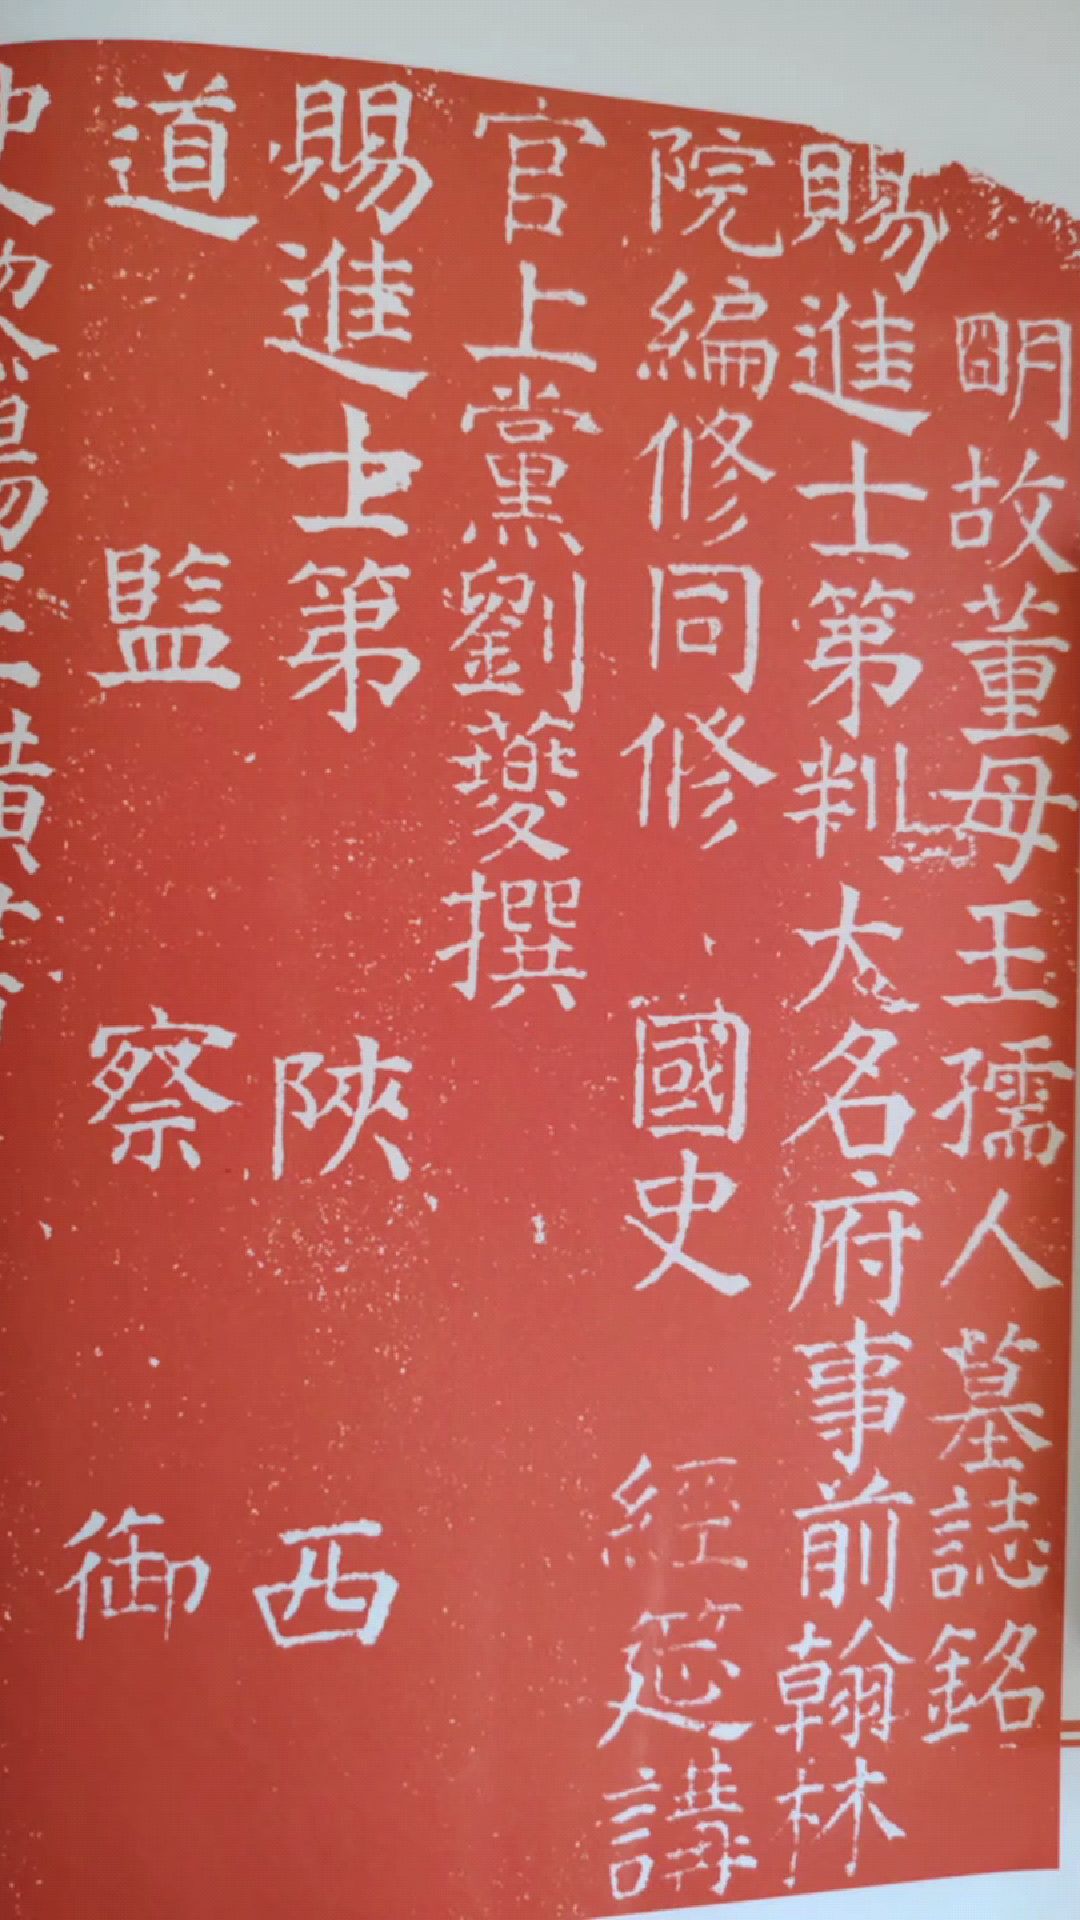 明故董母王孺人墓誌銘
賜進士第判大名府事前翰林
院編修同修國史經筵講
官上黨劉夔撰
賜進士第陝西
道監察御
史黎陽王璜書